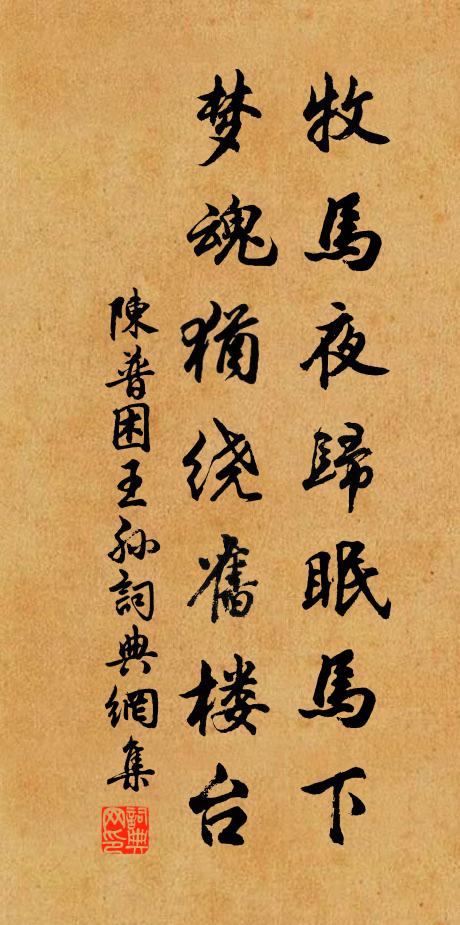 牧馬夜歸眠馬下
梦魂猶绕舊楼台
陳普困王孫詞典網集
詞典网印